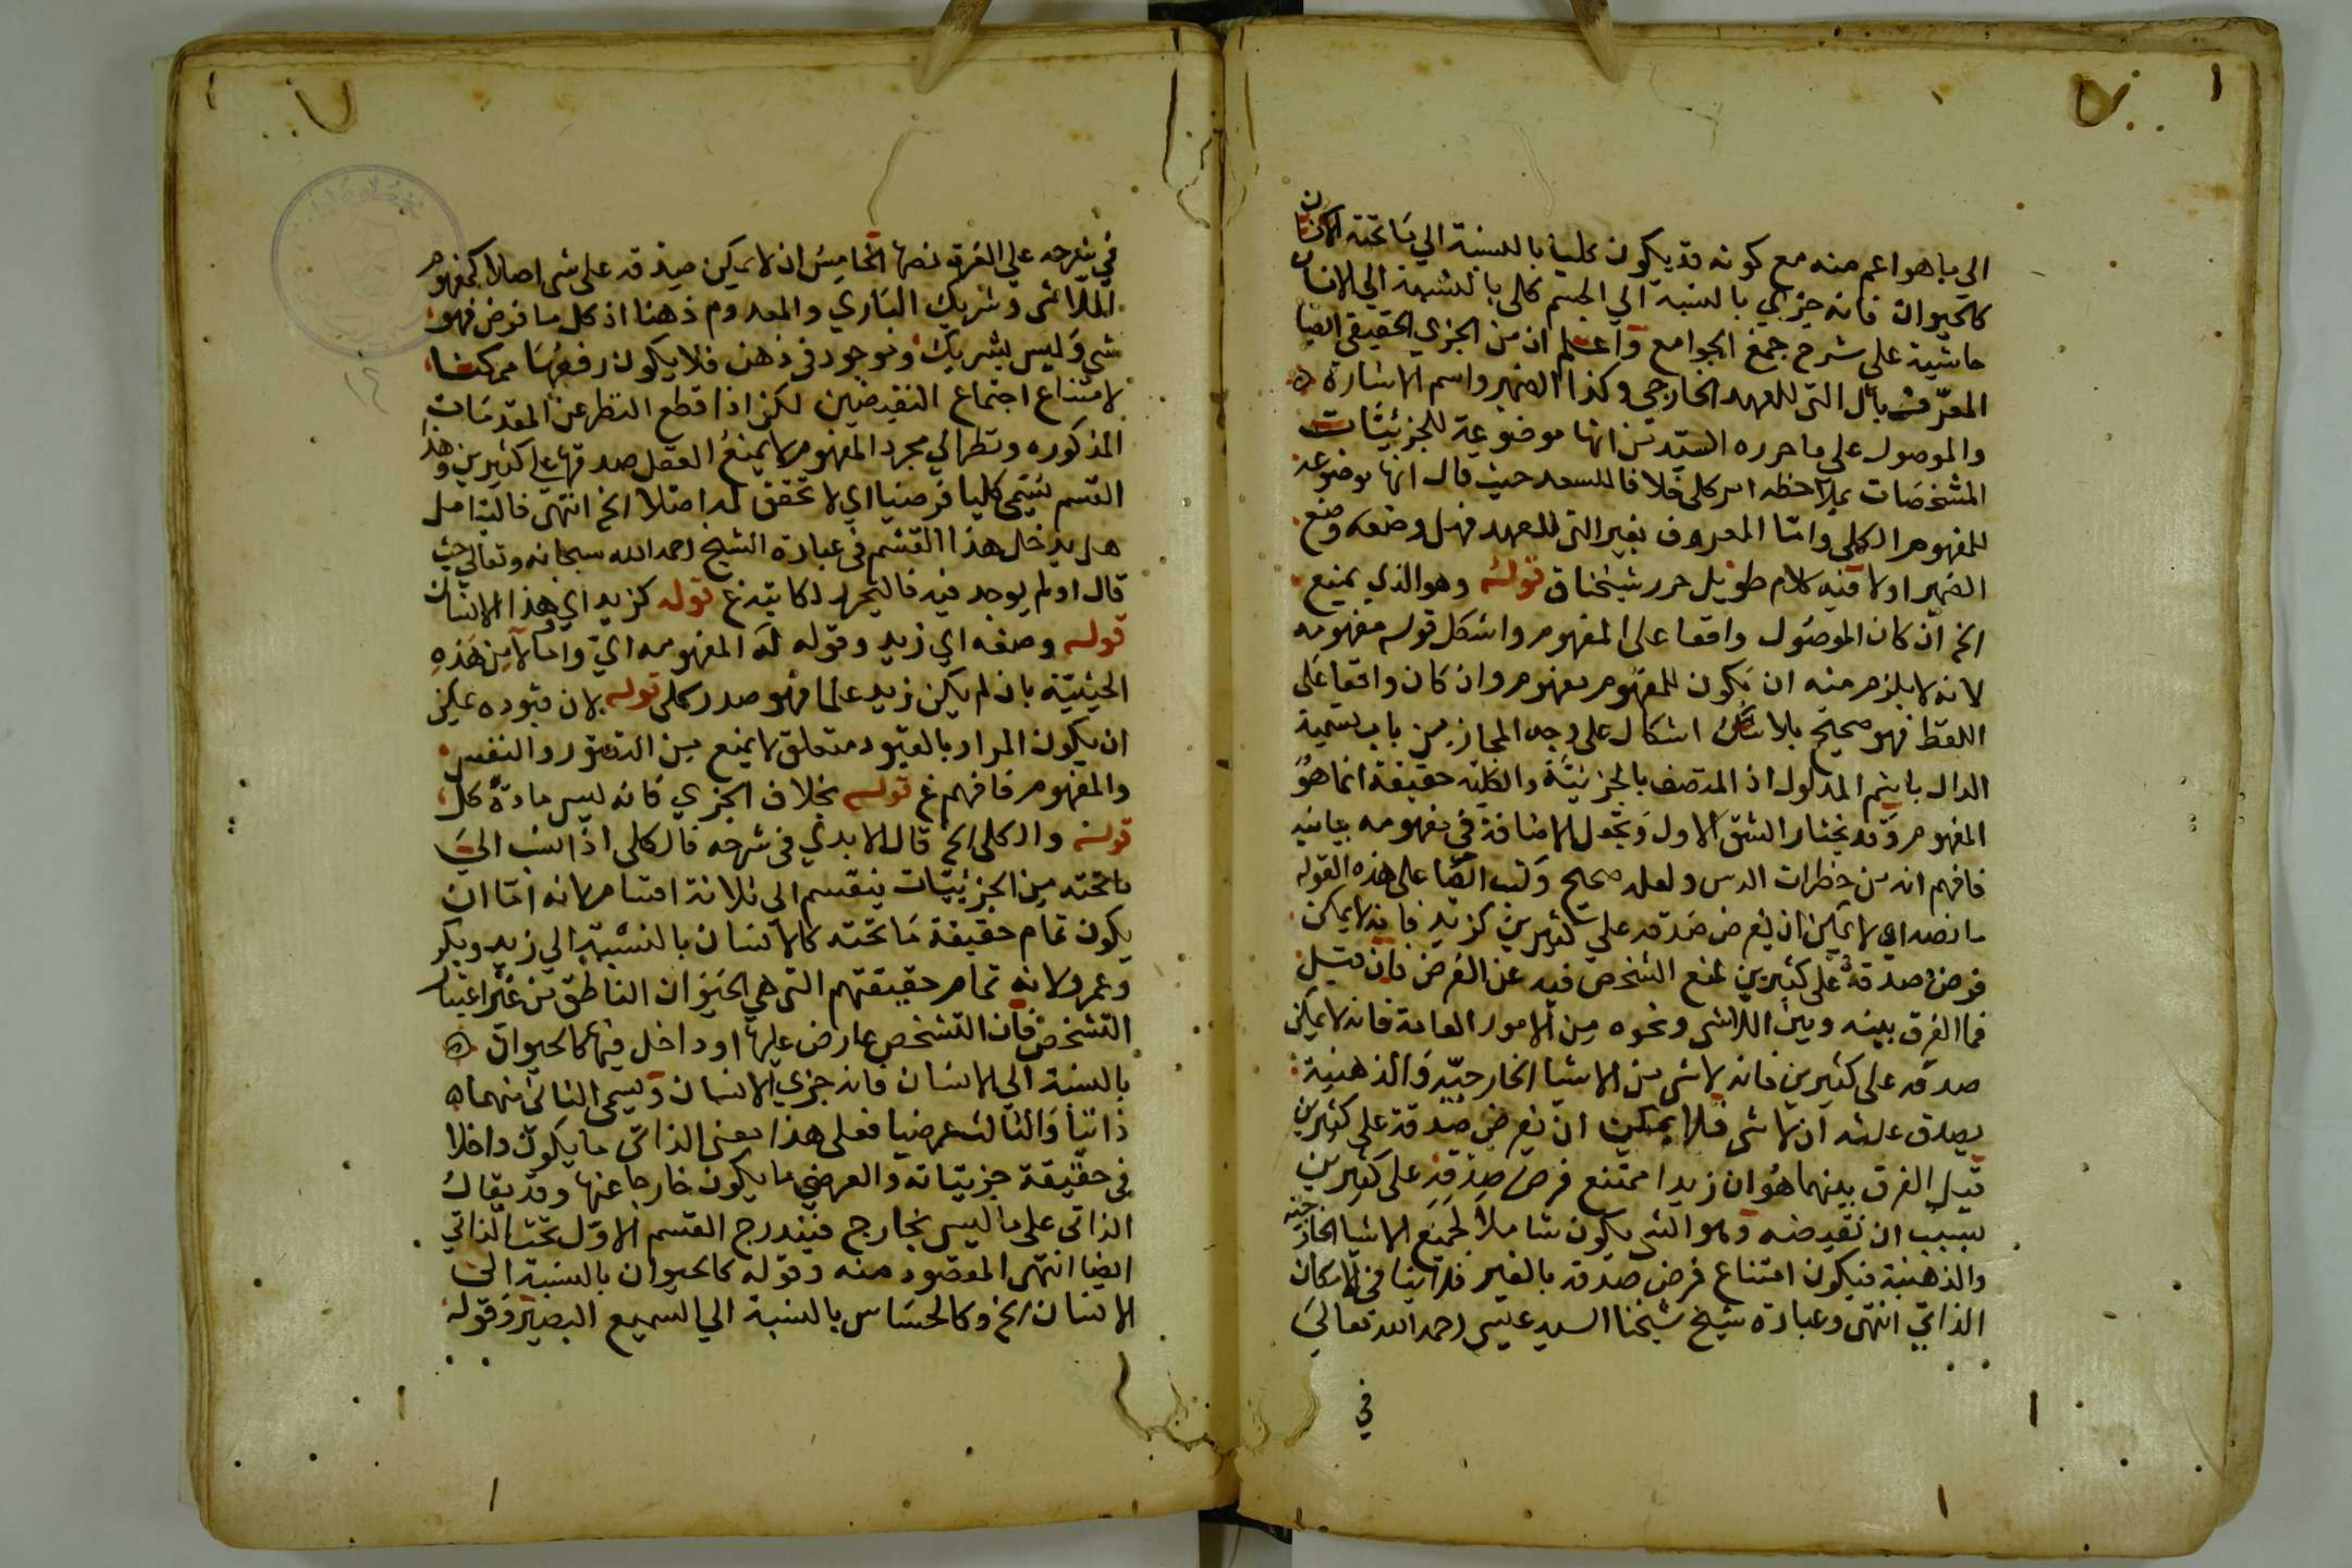 الي ما هو اعم منه مع كونه قد يكون كليا بالنسبة الي ما تحته كالانسان
كالحيوان فانه جزءي بالنسبة الي الجسم كلي بالنسبة الي الانسان
حاشية على شرح جمع الجوامع واعلم ان من الجزي الحقيقي ايضا
المعرّف بأل التي للعهد الخارجي وكذا الضمير واسم الاشارة ه
والموصول على ما حرره السيّد من انها موضوعة للجزئيّات
المشخصات بملاحظه امر كلي خلافا للسعد حيث قال انها موضوعة
للمفهوم الكلي وامّا المعروف بغير التي للعهد فهل وضعه وضع
الضمير اولا فيه كلام طويل حرر شيخنا ق قوله وهو الذي يمنع
الخ ان كان الموصول واقعا على المفهوم واشكل قوله مفهومه
لانه لا يلزم منه ان يكون للمفهوم مفهوم وان كان واقعا على
اللفظ فهو صحيح بلا اشكال على وجه المجاز من باب تسمية
الدال باسم المدلول اذ المتصف بالجزئيّة والكليّه حقيقة انما هو
المفهوم وقد نختار الشق الاول ونجعل الاضافة في مفهومه بيانيه
فافهم انه من خطرات الدرس ولعله صحيح وكتب ايضا على هذه القوله
ما نصه اي لا يمكن ان يفرض صدقه على كثيرين كزيد فانه لا يمكن
فرض صدقه على كثيرين لمنع الشخص فيه عن الفرض فان قيل
فما الفرق بينه وبين اللاشي ونحوه من الامور العامة فانه لا يمكن
صدقه على كثيرين فانه لا شي من الاشيا الخارجيّه والذهنية
يصدق عليه انه لا شي فلا يمكن ان يفرض صدقه على كثيرين
قيل الفرق بينهما هو ان زيدا ممتنع فرض صدقه على كثيرين
بسبب ان نقيضه وهو الشي يكون شاملا لجميع الاشيا الخارجيّه
والذهنية فيكون امتناع فرض صدقه بالغير فلا ينافي الامكان
الذاتي انتهى وعبارة شيخ شيخنا السيد عيسى رحمه الله تعالى
في
في شرحه على الغرة نصها الخامس ان لا يمكن صدقه على شي اصلا كمفهوم
اللاشي وشريك الباري والمعدوم ذهنا اذ كل ما فرض فهو
شي وليس بشريك وموجود في ذهن فلا يكون رفعها ممكنا
لامتناع اجتماع النقيضين لكن اذا قطع النظر عن المقدمات
المذكوره ونظر الي مجرد المفهوم لا يمنع العقل صدقها على كثيرين وهذا
القسم يسمى كليا فرضيا اي لا تحقق له اصلا الخ انتهى فاليتامل
هل يدخل هذا القسم في عبارة الشيخ رحمه الله سبحانه وتعالى حيث
قال او لم يوجد فيه فاليحرر قوله كزيد اي هذا الانسان
قوله وصفه اي زيد وقوله له المفهومه اي وامّا لا من هذه
الحيثيّه بان لم يكن زيد علما فهو صدر كلي قوله لان قيوده يمكن
ان يكون المراد بالقيود متعلق لا يمنع من التصور والنفس
والمفهوم فافهم غ قوله بخلاف الجزي فانه ليس مادة كل
قوله والكلي الخ قال الابدي في شرحه قال كلي اذا نسب الي
ما تحته من الجزئيّات ينقسم الى ثلاثة اقسام لانه امّا ان
يكون تمام حقيقة ما تحته كالانسان بالنسبة الي زيد وبكر
وعمرو لانه تمام حقيقتهم التي هي الحيوان الناطق من غير اعتبار
التشخص فان التشخص عارض عليها او داخل فيها كالحيوان ه
بالنسبة الي الانسان فانه جزي الانسان ويسمى الثاني منهما ه
ذاتيا والثالث عرضيا فعلى هذا معنى الذاتي ما يكون داخلا
في حقيقة جزيّياته والعرضي ما يكون خارجا عنها وقد يقال
الذاتي على ما ليس بخارج فيندرج القسم الاول تحت الذاتي
ايضا انتهى المقصود منه وقوله كالحيوان بالنسبة الي
الانسان الخ وكالحساس بالنسبة الي السميع البصير وقوله